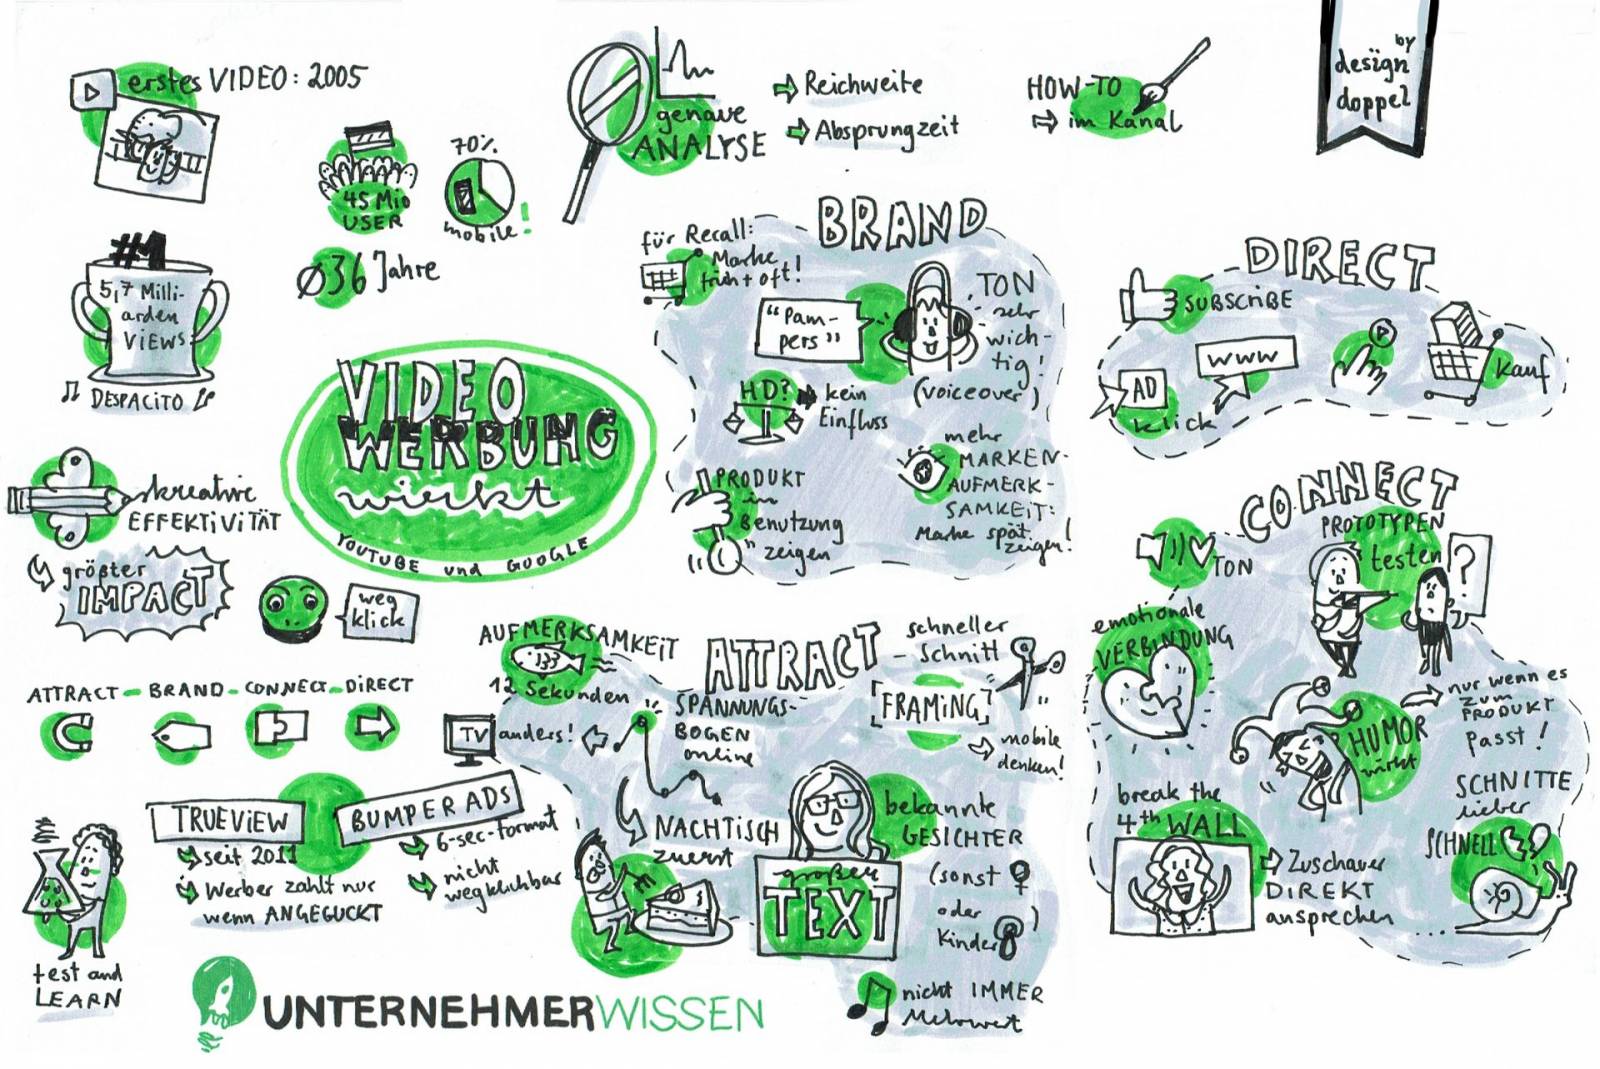 erstes VIDEO: 2005
45 Mio
USER
70%
mobile!
ø36 Jahre
#1
5,7 Milli-
arden
VIEWS
DESPACITO
genaue
ANALYSE
Reichweite
Absprungzeit
HOW-TO
im Kanal
by
design
doppel
VIDEO
WERBUNG
wirkt
YOUTUBE und GOOGLE
kreative
EFFEKTIVITÄT
größter
IMPACT
weg
klick
ATTRACT - BRAND - CONNECT - DIRECT
TRUEVIEW
seit 2011
Werber zahlt nur
wenn ANGEGUCKT
BUMPER ADS
6-sec-format
nicht
wegklickbar
test and
LEARN
UNTERNEHMERWISSEN
BRAND
für Recall:
Marke
früh + oft!
"Pam-
pers"
TON
sehr
wich-
tig!
(voiceover)
HD?
kein
Einfluss
PRODUKT
in
Benutzung
zeigen
mehr
MARKEN-
AUFMERK-
SAMKEIT:
Marke spät
zeigen!
DIRECT
SUBSCRIBE
AD
klick
WWW
Kauf
ATTRACT
AUFMERKSAMKEIT
12 Sekunden
TV
anders!
SPANNUNGS-
BOGEN
online
NACHTISCH
zuerst
schneller
Schnitt
[FRAMING]
mobile
denken!
bekannte
GESICHTER
(sonst
oder
Kinder)
großen
TEXT
nicht IMMER
Mehrwert
CONNECT
TON
emotionale
VERBINDUNG
PROTOTYPEN
testen
?
HUMOR
wirkt
nur wenn es
zum
PRODUKT
passt!
break the
4th WALL
Zuschauer
DIREKT
ansprechen
SCHNITTE
lieber
SCHNELL